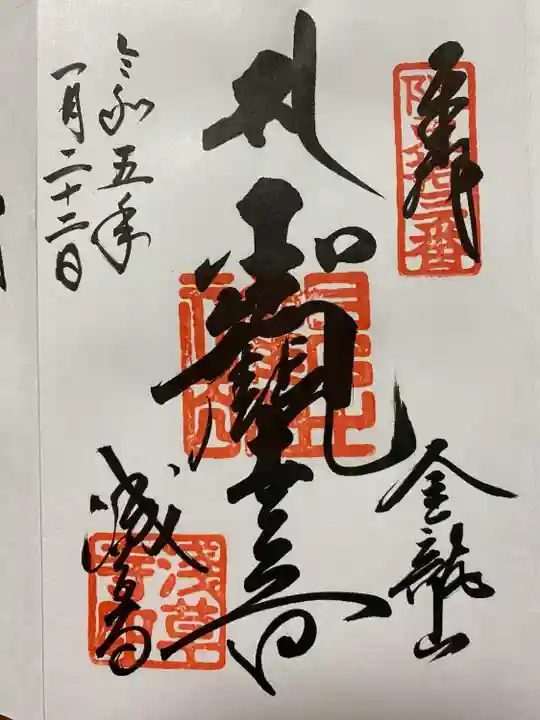 奉拝
坂東拾三番
金龍山
聖観世音
浅草寺
浅草寺印
令和五年
一月二十二日